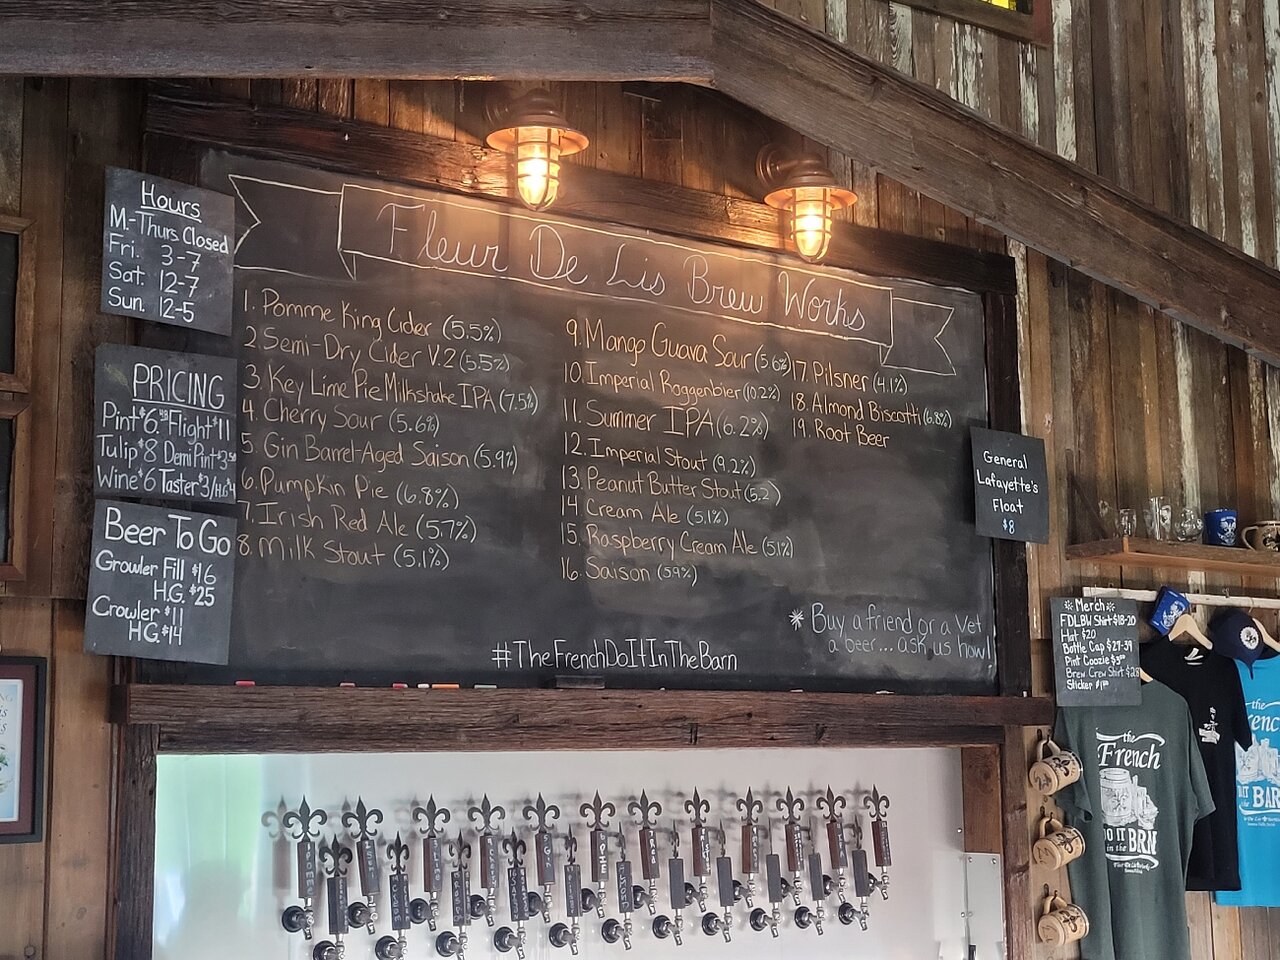 Fleur De Lis Brew Works
Hours
M-Thurs Closed
Fri. 3-7
Sat. 12-7
Sun. 12-5
PRICING
Pint $6. 4B Flight $11
Tulip $8 Demi Pint $3.50
Wine $6 Taster $3/H.G. $4
Beer To Go
Growler Fill $16
H.G. $25
Crowler $11
H.G. $14
1. Pomme King Cider (5.5%)
2. Semi-Dry Cider V.2 (5.5%)
3. Key Lime Pie Milkshake IPA (7.5%)
4. Cherry Sour (5.6%)
5. Gin Barrel-Aged Saison (5.9%)
6. Pumpkin Pie (6.8%)
7. Irish Red Ale (5.7%)
8. Milk Stout (5.1%)
9. Mango Guava Sour (5.6%)
10. Imperial Roggenbier (10.2%)
11. Summer IPA (6.2%)
12. Imperial Stout (9.2%)
13. Peanut Butter Stout (5.2)
14 Cream Ale (5.1%)
15. Raspberry Cream Ale (5.1%)
16. Saison (5.9%)
17. Pilsner (4.1%)
18. Almond Biscotti (6.8%)
19. Root Beer
* Buy a friend or a Vet
a beer... ask us how!
#TheFrenchDoItInTheBarn
General
Lafayette's
Float
$8
Merch
FDLBW Shirt $18-20
Hat $20
Bottle Cap $29-39
Pint Coozie $3.00
Brew Crew Shirt $28
Sticker $1.00
the
French
DO IT
in the BRN
the